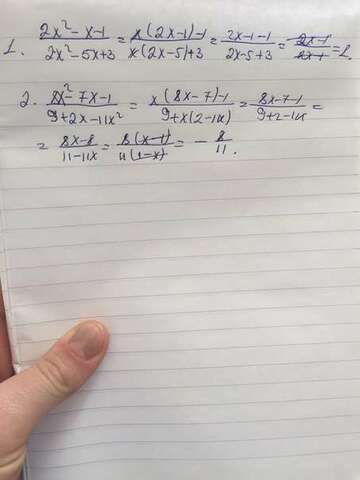 1. (2x² - x - 1)/(2x² - 5x + 3) = (x(2x-1)-1)/(x(2x-5)+3) = (2x-1-1)/(2x-5+3) = (2x-1)/(2x-1) = 1.
2. (8x² - 7x - 1)/(9 + 2x - 11x²) = (x(8x-7)-1)/(9+x(2-11x)) = (8x-7-1)/(9+2-11x) =
= (8x-8)/(11-11x) = (8(x-1))/(11(1-x)) = -8/11.